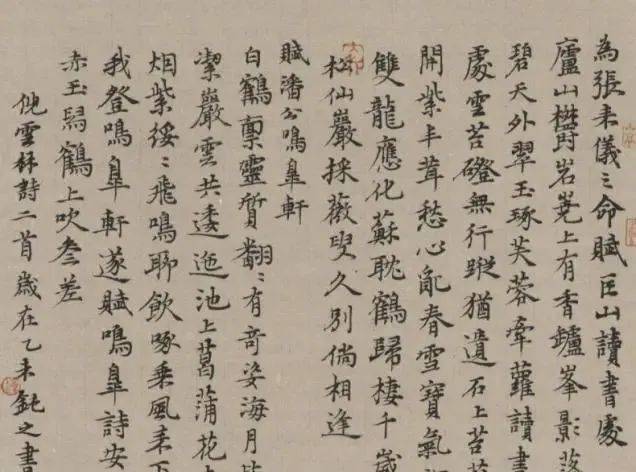 為張来儀〻命賦匡山讀書處
廬山欝岧嶤上有香鑪峯影落
碧天外翠玉琢芙蓉牽蘿讀書
處雲苔磴無行蹤猶遺石上苔
開紫丰茸愁心亂春雪寶氣
雙龍應化蘇耽鶴歸棲千歲
松仙巖採薇叟久別倘相逢
賦潘公鳴皐軒
白鶴稟靈質翩〻有奇姿海月
潔巖雲共逶迤池上菖蒲花
烟紫綏〻飛鳴聊飲啄乘風来下
我登鳴皐軒遂賦鳴皐詩安
赤玉舄鶴上吹叄差
倪雲林詩二首歲在乙未鈍之書